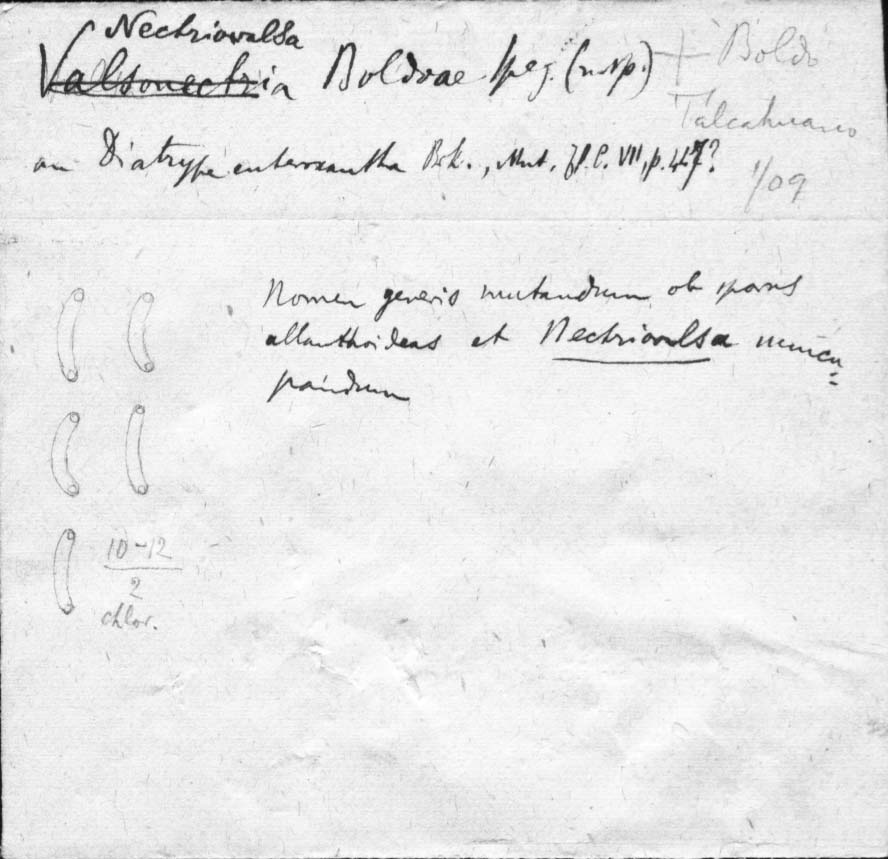 Nectriovalsa
Valsonectria Boldoae Speg. (n. sp.) + Boldo
Talcahuano
an Diatrype enteroxantha Brk., Mnt. Fl. C. VII, p. 447?
1/09
Nomen generis mutandum ob sporas
allantoideas et Nectriovalsa nuncu=
pandum
10-12
2
chlor.